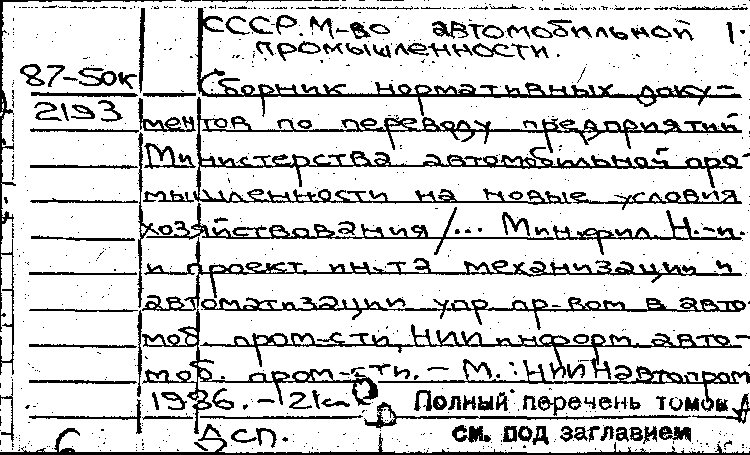 СССР. М-во автомобильной 1.
промышленности.
87-50к Сборник нормативных доку-
2193 ментов по переводу предприятий
Министерства автомобильной про-
мышленности на новые условия
хозяйствования/... Мин. фил. Н.-и.
и проект. ин-та механизации и
автоматизации упр. пр-вом в авто
моб. пром-сти, НИИ информ. авто-
моб. пром-сти. – М.: НИИНавтопром
1986. –
Полный перечень томов
см. под заглавием
Дсп.